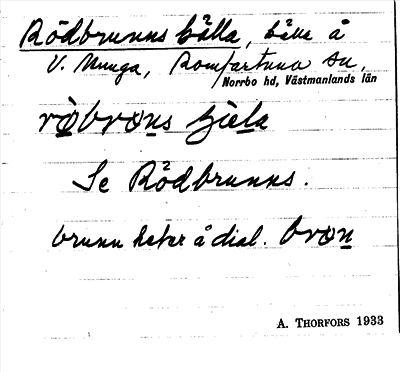 Rödbrunns källa, källa å
V. Munga, Romfartuna sn,
Norrbo hd, Västmanlands län
Se Rödbrunns.
brunn heter å dial. bron
A. THORFORS 1933